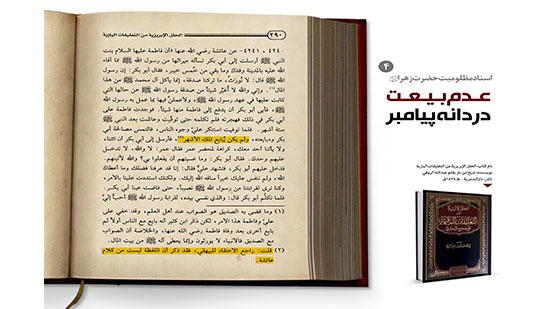 ٢٩٠
الحلل الإبريزية من التعليقات البازية
٤٢٤٠ ، ٤٢٤١- عن عائشة رضي الله عنها «أن فاطمة عليها السلام بنت
النبي ﷺ أرسلت إلى أبي بكر تسأله ميراثها من رسول الله ﷺ مما أفاء
الله عليه بالمدينة وفدك وما بقي من خُمس خيبر، فقال أبو بكر: إن رسول
الله ﷺ قال: لا نُورَث، ما تركنا صدقة، إنما يأكل آل محمد ﷺ في هذا
المال، وإني والله لا أُغيِّر شيئاً من صدقة رسول الله ﷺ عن حالها التي
كانت عليها في عهد رسول الله ﷺ، ولأعملنَّ فيها بما عمل به رسول الله
ﷺ. فأبى أبو بكر أن يدفع إلى فاطمة منها شيئاً. فوجدت فاطمة على
أبي بكر في ذلك فهجرته فلم تكلمه حتى توفيت وعاشت بعد النبي ﷺ
ستة أشهر.
فلما توفيت استنكر عليٌّ وجوه الناس، فالتمس مصالحة أبي
بكر ومبايعته، ولم يكن يُبايع تلك الأشهر، فأرسل إلى أبي بكر أن ائتنا
ولا يأتنا أحد معك، كراهة لمحضر عمر فقال عمر: لا والله، لا تدخل
عليهم وحدك. فقال أبو بكر: وما عسيتهم أن يفعلوا بي؟ والله لآتينهم.
فدخل عليهم أبو بكر، فتشهد عليٌّ فقال: إنا قد عرفنا فضلك وما أعطاك
الله، ولم ننفس عليك خيراً ساقه الله إليك، ولكنك استبددت علينا بالأمر،
وكنا نرى لقرابتنا من رسول الله ﷺ نصيباً، حتى فاضت عينا أبي بكر.
فلما تكلم أبو بكر قال: والذي نفسي بيده، لقرابة رسول الله ﷺ أحبُّ إليَّ
(١) وما قضى به الصديق هو الصواب عند أهل العلم، وقد خفي على
علي وفاطمة هذا الأمر، لكن ذكر ابن كثير أنه بايع مع الناس أولاً ثم
بايع أخرى بعد وفاة فاطمة رضي الله عنها، والخلاصة أن الصواب
مع الصديق فالأنبياء لا يورثون وإنما يعطى آله ﷺ من بيت المال.
(٢) قلت: راجع الاعتقاد للبيهقي، فقد ذكر أن اللفظة ليست من كلام
عائشة.
۴
اسناد مظلومیت حضرت زهرا
عدم بیعت
دردانه پیامبر
نام کتاب: الحلل الإبريزية من التعليقات البازية